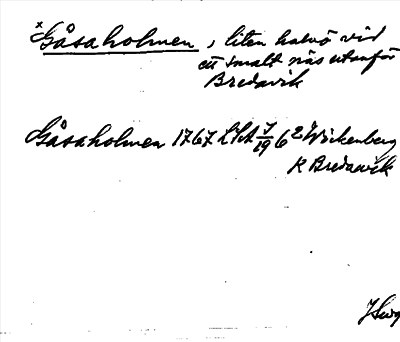 x Gåsaholmen, liten halvö vid
ett smalt näs utanför
Bredavik
Gåsaholmen 1767 LSA 7/19 6 2 Wickenberg
K Bredavik